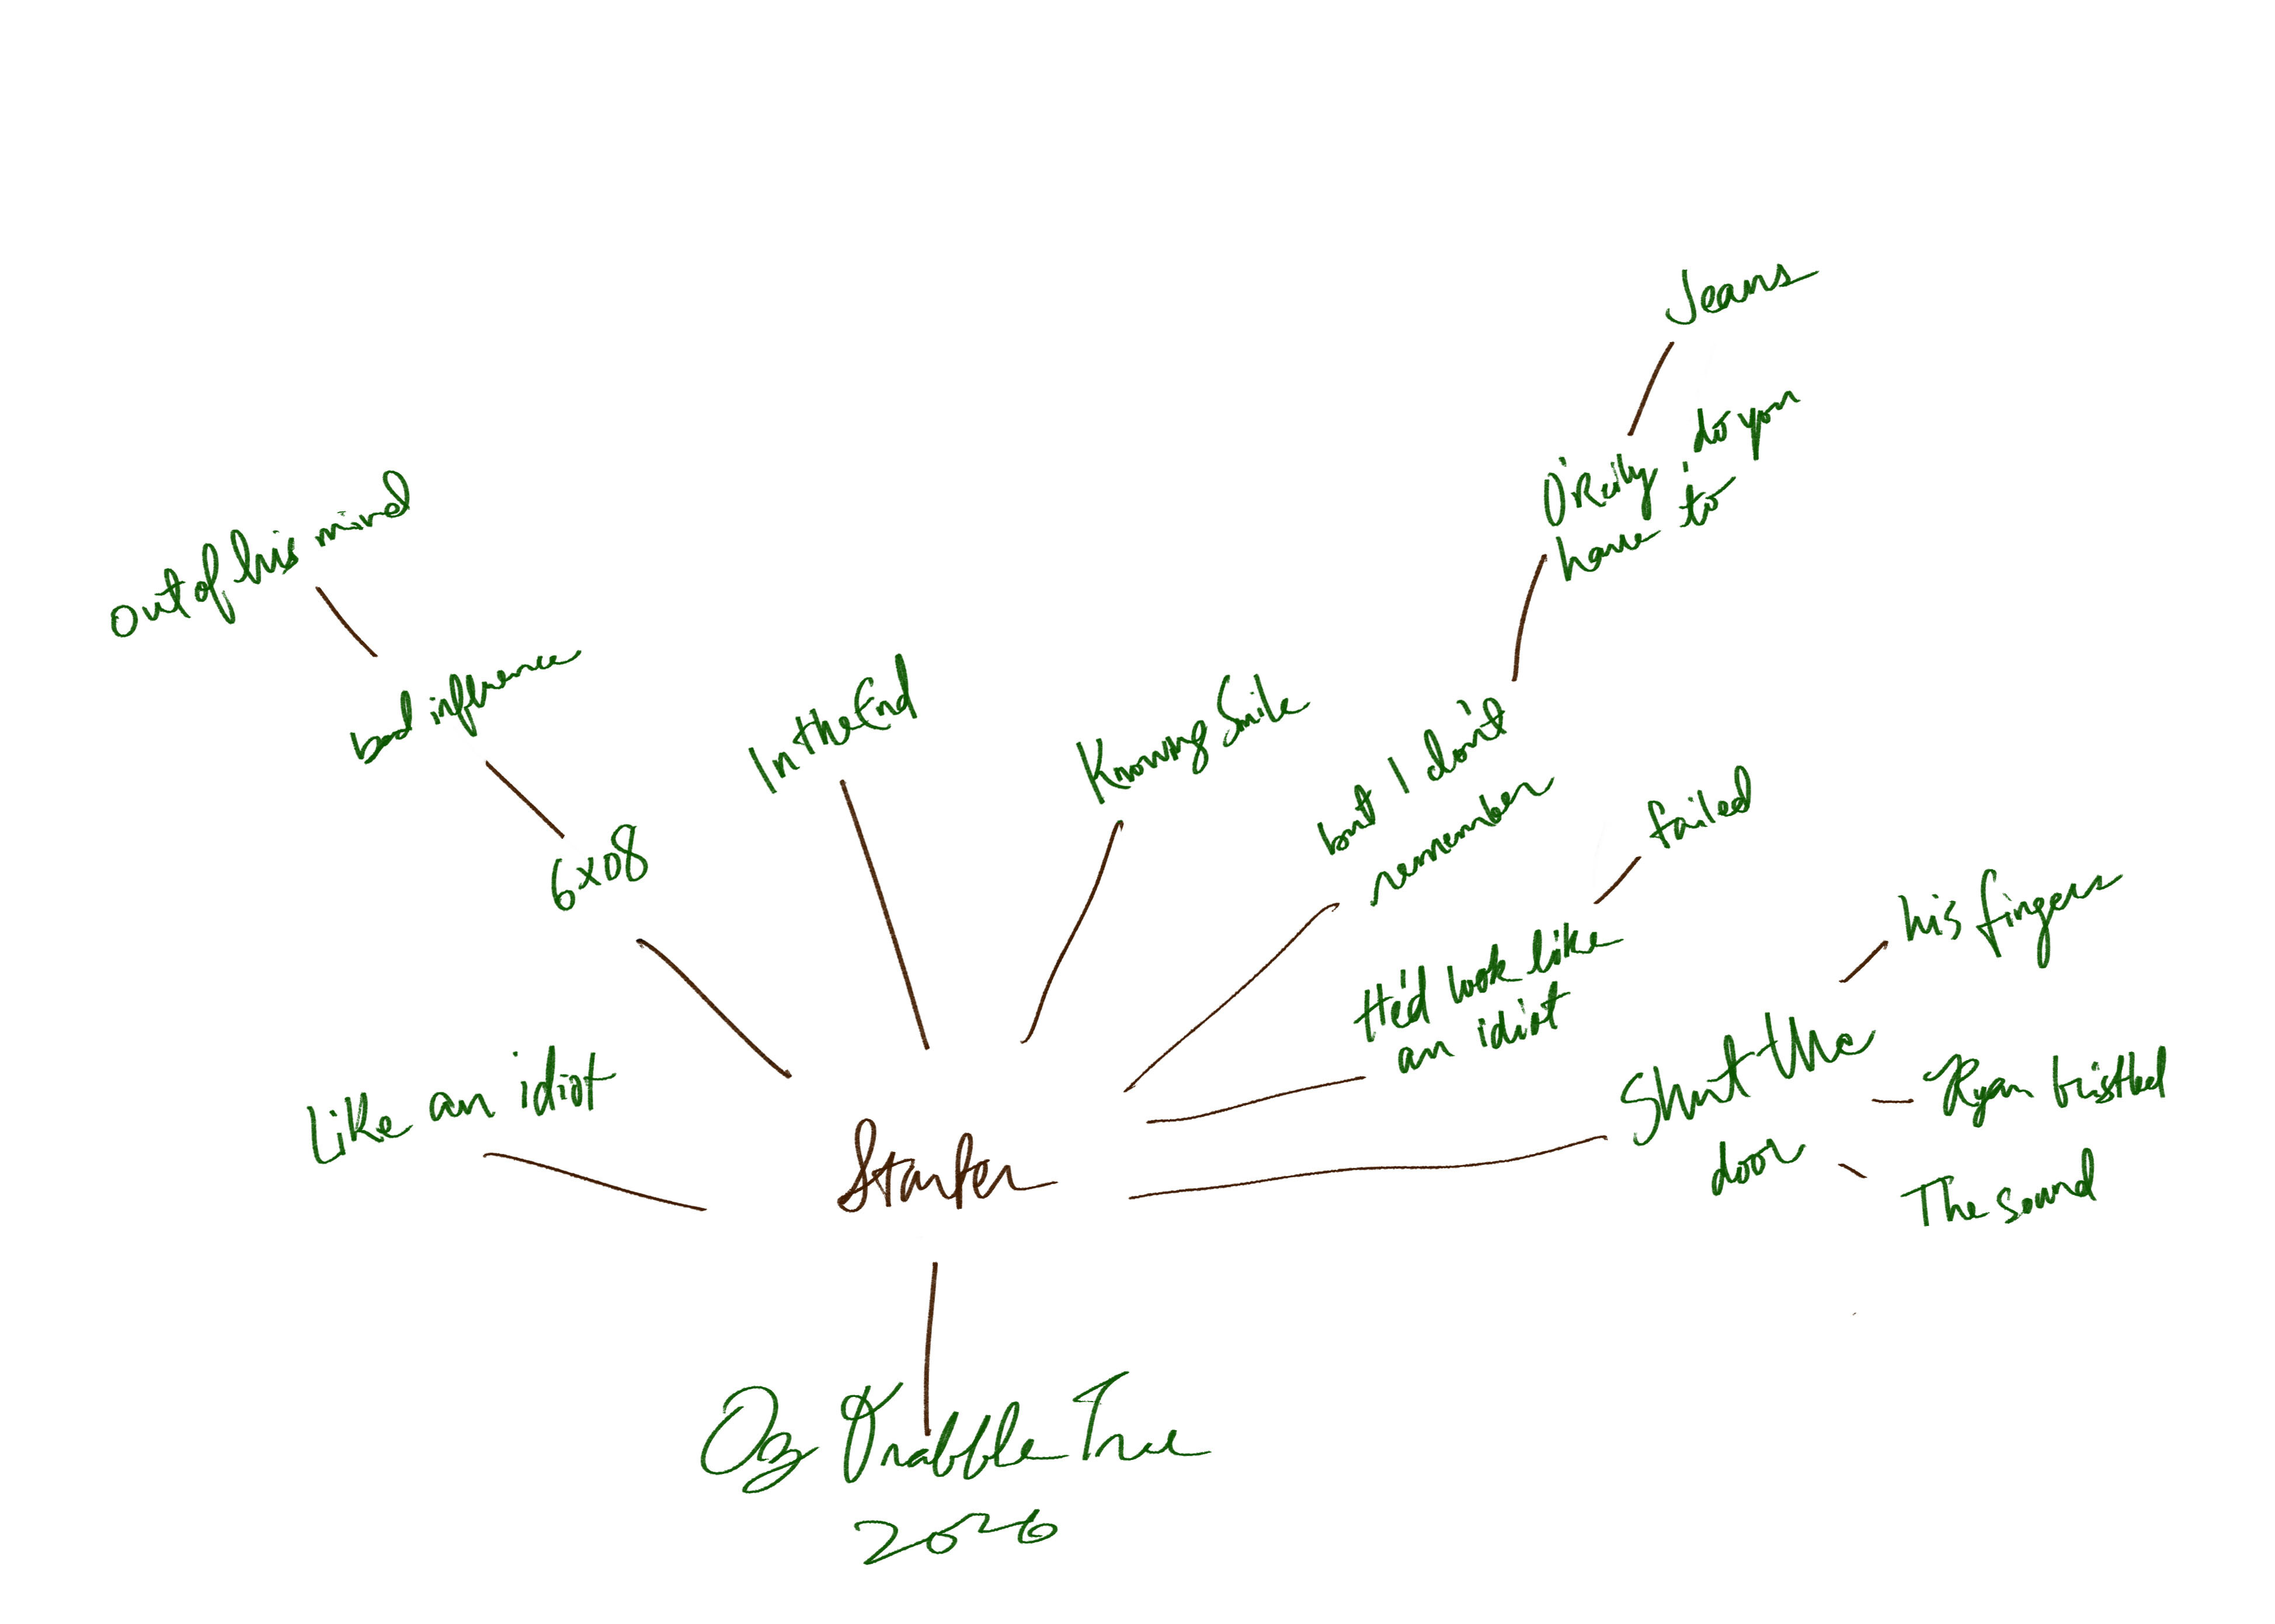 Jeans
O'Reily do you
have to
out of his mind
bad influence
In the End
Knowing Smile
but I don't
remember
failed
6x08
his fingers
He'd look like
an idiot
Like an idiot
Shut the
door
Ryan bristled
The sound
Starter
Oz Drabble Tree
2026